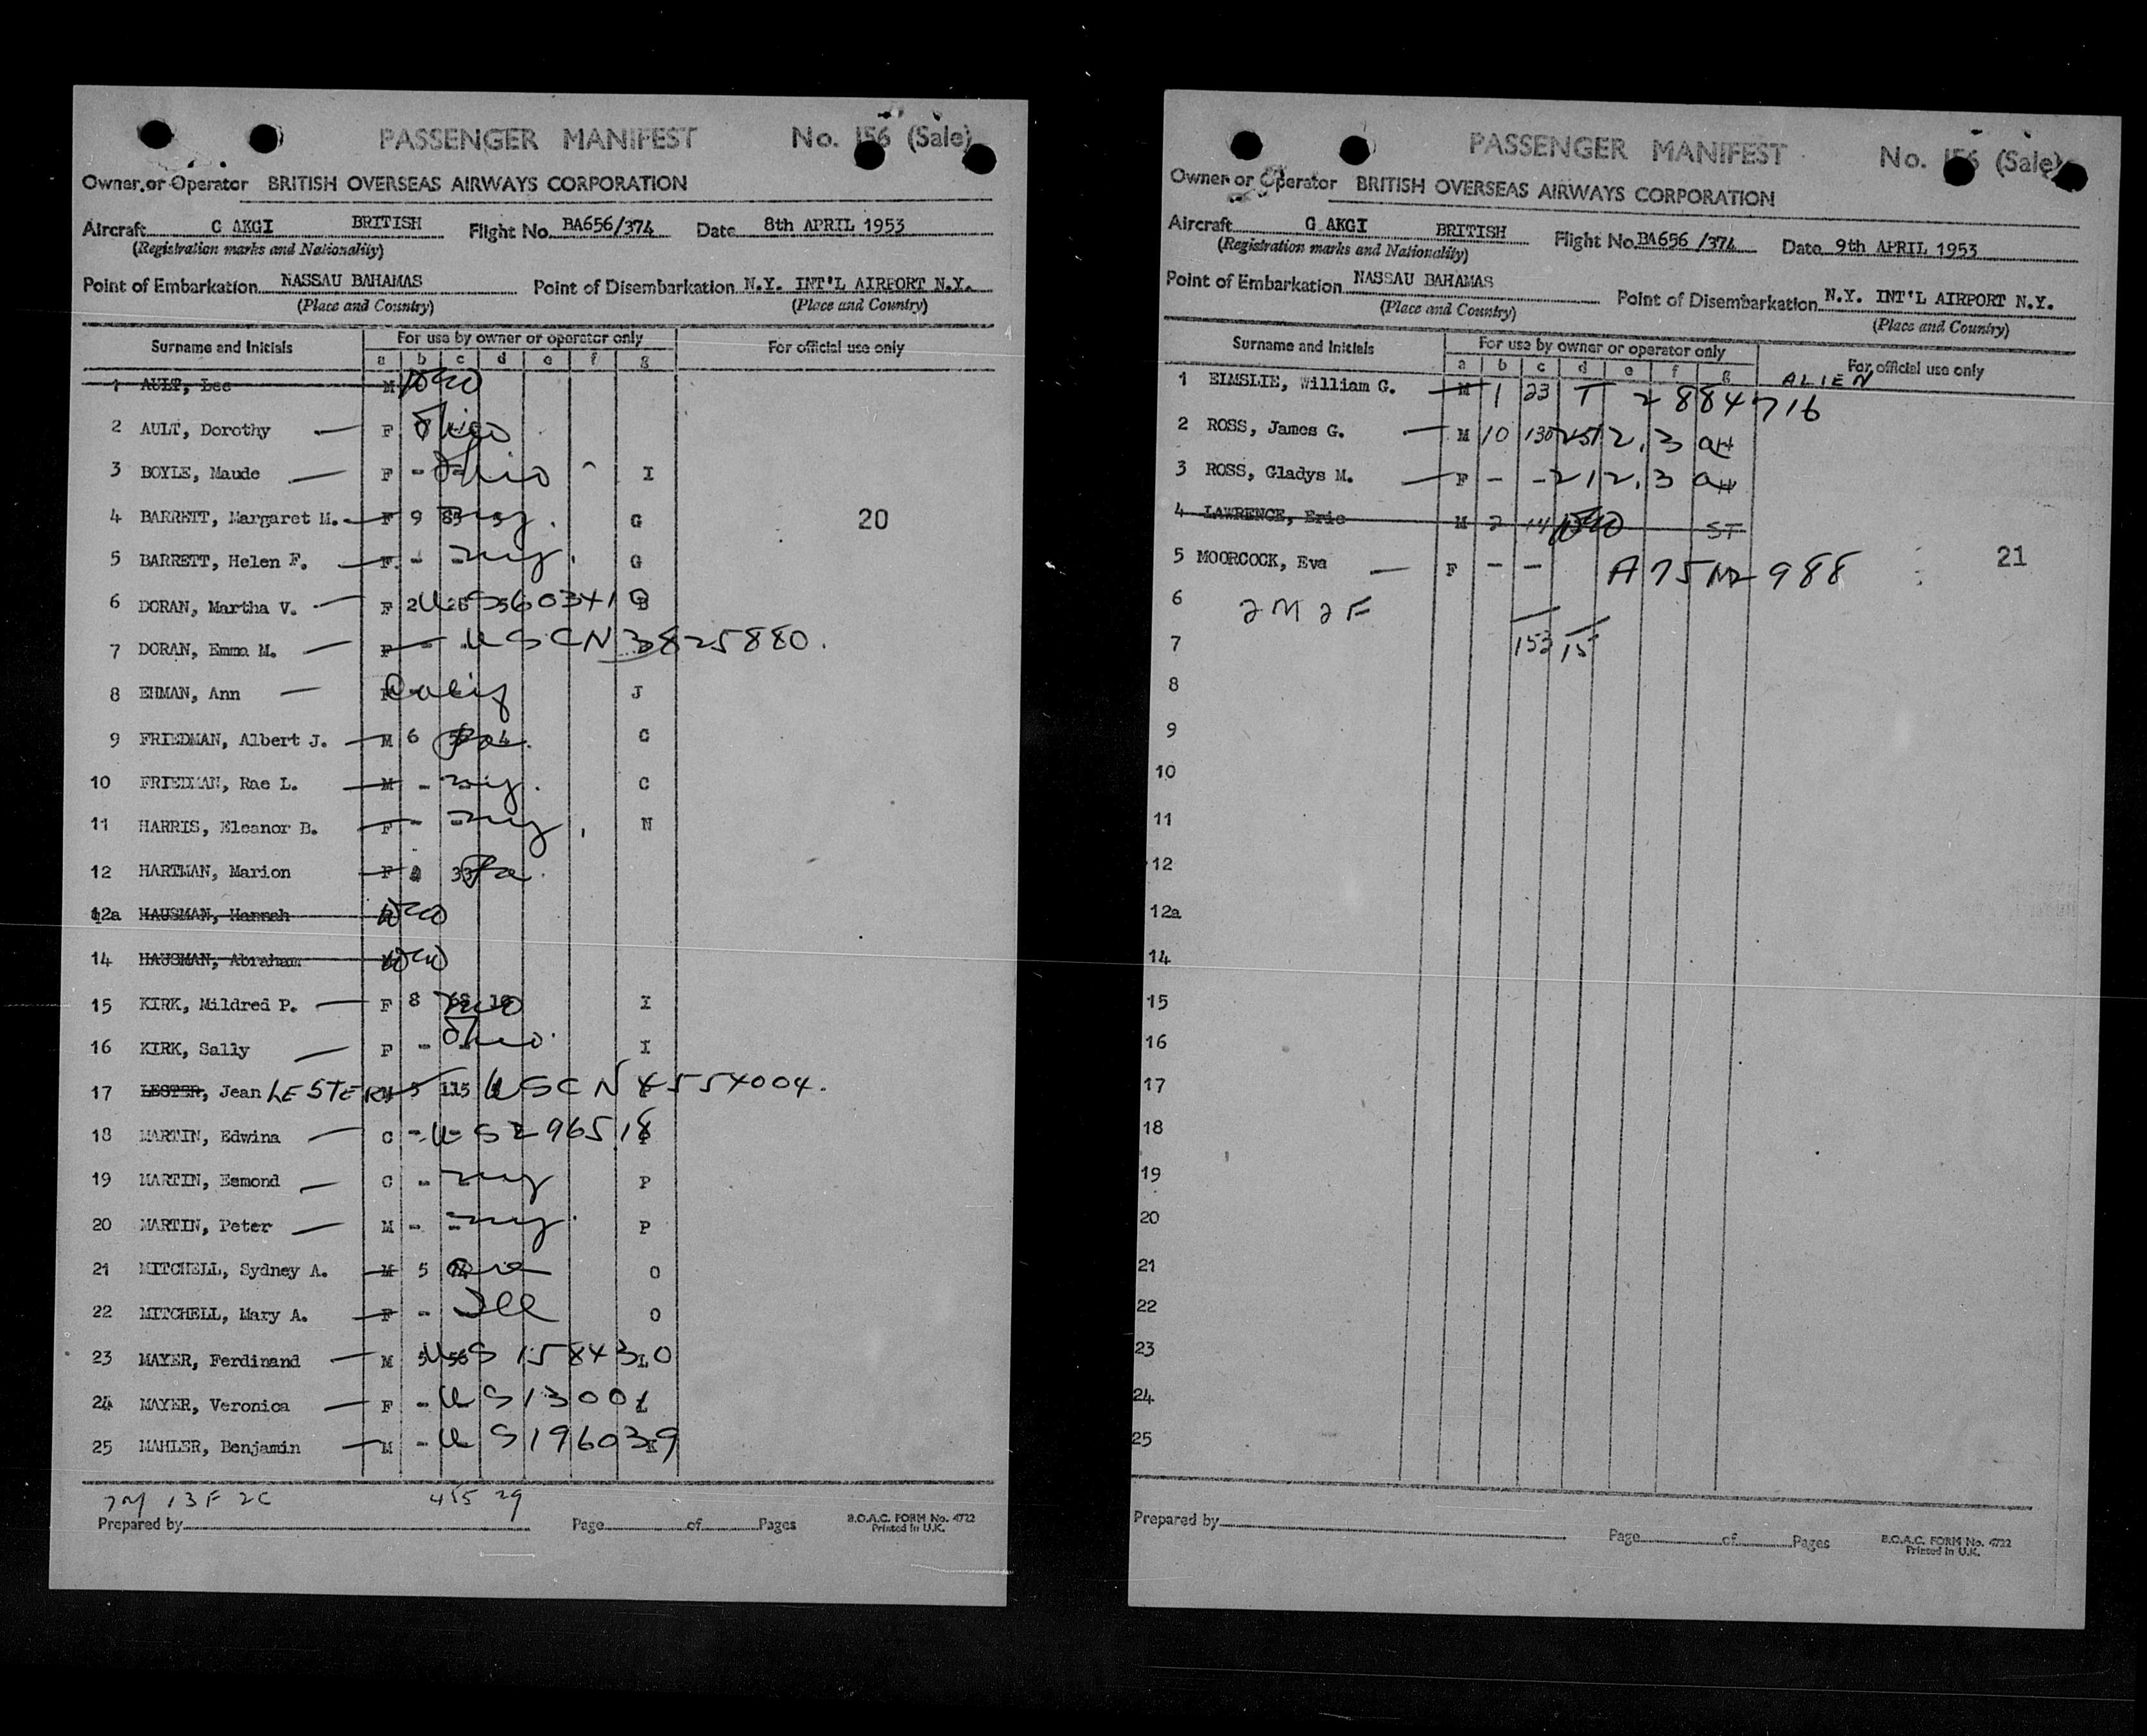 PASSENGER MANIFEST No. 156 (Sale)
Owner or Operator BRITISH OVERSEAS AIRWAYS CORPORATION
Aircraft G AKGI BRITISH Flight No. BA656/374 Date 8th APRIL 1953
(Registration marks and Nationality)
Point of Embarkation NASSAU BAHAMAS Point of Disembarkation N.Y. INT'L AIRPORT N.Y.
(Place and Country) (Place and Country)
Surname and Initials For use by owner or operator only For official use only
a b c d e f g
1 AULT, Lee M
2 AULT, Dorothy F Ohio
3 BOYLE, Maude F - Ohio I
4 BARRETT, Margaret M. F 9 85 ny. G 20
5 BARRETT, Helen F. F - - ny. G
6 DORAN, Martha V. F 2 US560341
7 DORAN, Emma M. F - USCN 3825880.
8 EHMAN, Ann Calif J
9 FRIEDMAN, Albert J. M 6 Pa. C
10 FRIEDMAN, Rae L. M - ny. C
11 HARRIS, Eleanor B. F - - ny. N
12 HARTMAN, Marion F 33 Pa.
12a HAUSMAN, Hannah
14 HAUSMAN, Abraham
15 KIRK, Mildred P. F 8 I
16 KIRK, Sally F - Ohio I
17 LESTER, Jean LESTER 115 USCN 4554004.
18 MARTIN, Edwina C - US296518
19 MARTIN, Esmond C - ny P
20 MARTIN, Peter M - - ny. P
21 MITCHELL, Sydney A. M 5 O
22 MITCHELL, Mary A. F - Ill O
23 MAYER, Ferdinand M 5 US 1584310
24 MAYER, Veronica F - US1300
25 MAHLER, Benjamin M - US196039
7M 13F 2C 455 29
Prepared by Page of Pages B.O.A.C. FORM No. 4722
Printed in U.K.
PASSENGER MANIFEST No. 156 (Sale)
Owner or Operator BRITISH OVERSEAS AIRWAYS CORPORATION
Aircraft G AKGI BRITISH Flight No. BA656 /374 Date 9th APRIL 1953
(Registration marks and Nationality)
Point of Embarkation NASSAU BAHAMAS Point of Disembarkation N.Y. INT'L AIRPORT N.Y.
(Place and Country) (Place and Country)
Surname and Initials For use by owner or operator only For official use only
a b c d e f g ALIEN
1 ELMSLIE, William G. M 1 23 T 2884716
2 ROSS, James G. M 10 130 2512.3
3 ROSS, Gladys M. F - - 212.3
4 LAWRENCE, Eric M 2 14 ST
5 MOORCOCK, Eva F - - 21
6 2M 2F
7 153 15
8
9
10
11
12
12a
14
15
16
17
18
19
20
21
22
23
24
25
Prepared by Page of Pages B.O.A.C. FORM No. 4722
Printed in U.K.